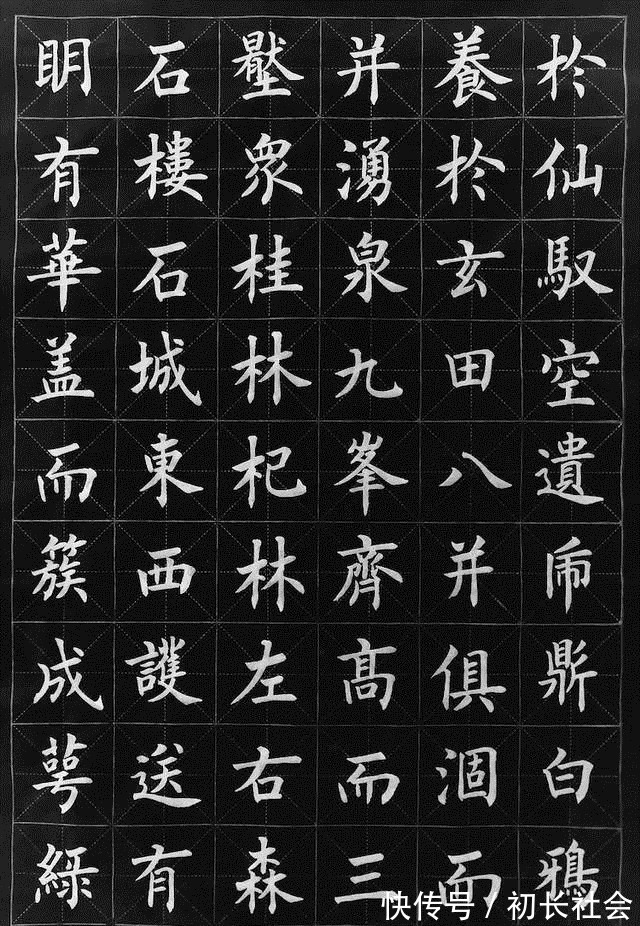 於仙馭空遺鼎白鴉
養於玄田八并俱涸面
并湧泉九峯齊高而三
衆桂林杞林左右森
石樓石城東西護送有
眀有華盖而簇成萼綠
快传号 / 初长社会